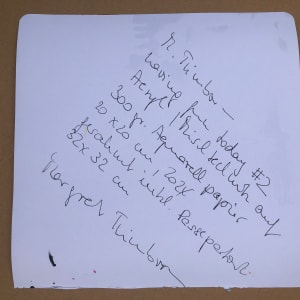 M. Thimborn
having fun today #2
Acryl / Mischtechnik auf
300 gr. Aquarellpapier
20 x 20 cm 2026
gerahmt inkl. Passepartout
32 x 32 cm
Margret Thimborn